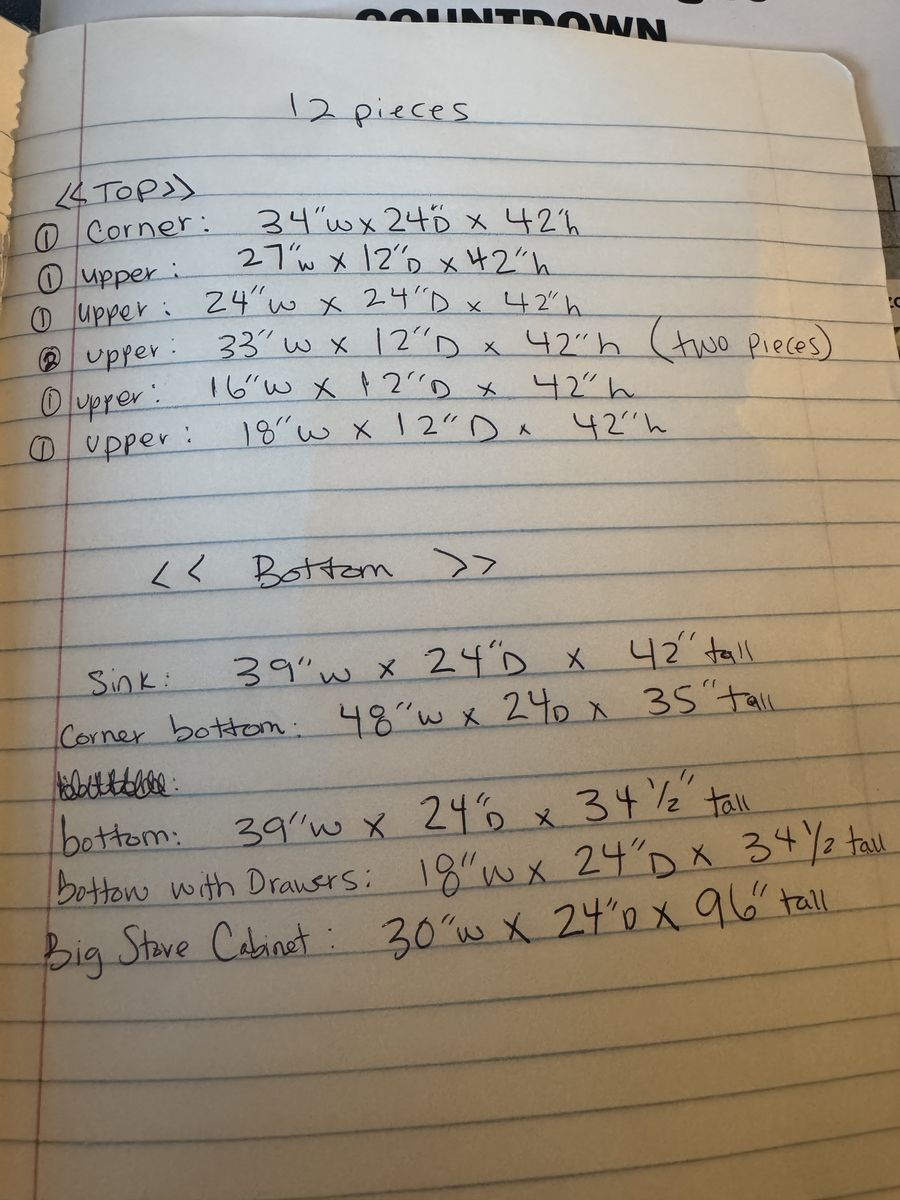 COUNTDOWN
12 pieces
<< TOP >>
① Corner: 34"w x 24"D x 42"h
① upper: 27"w x 12"D x 42"h
① upper: 24"w x 24"D x 42"h
② upper: 33"w x 12"D x 42"h (two pieces)
① upper: 16"w x 12"D x 42"h
① upper: 18"w x 12"D x 42"h
<< Bottom >>
Sink: 39"w x 24"D x 42" tall
Corner bottom: 48"w x 24D x 35" tall
bottom: 39"w x 24"D x 34 1/2" tall
bottom with Drawers: 18"w x 24"D x 34 1/2 tall
Big Stove Cabinet: 30"w x 24"D x 96" tall